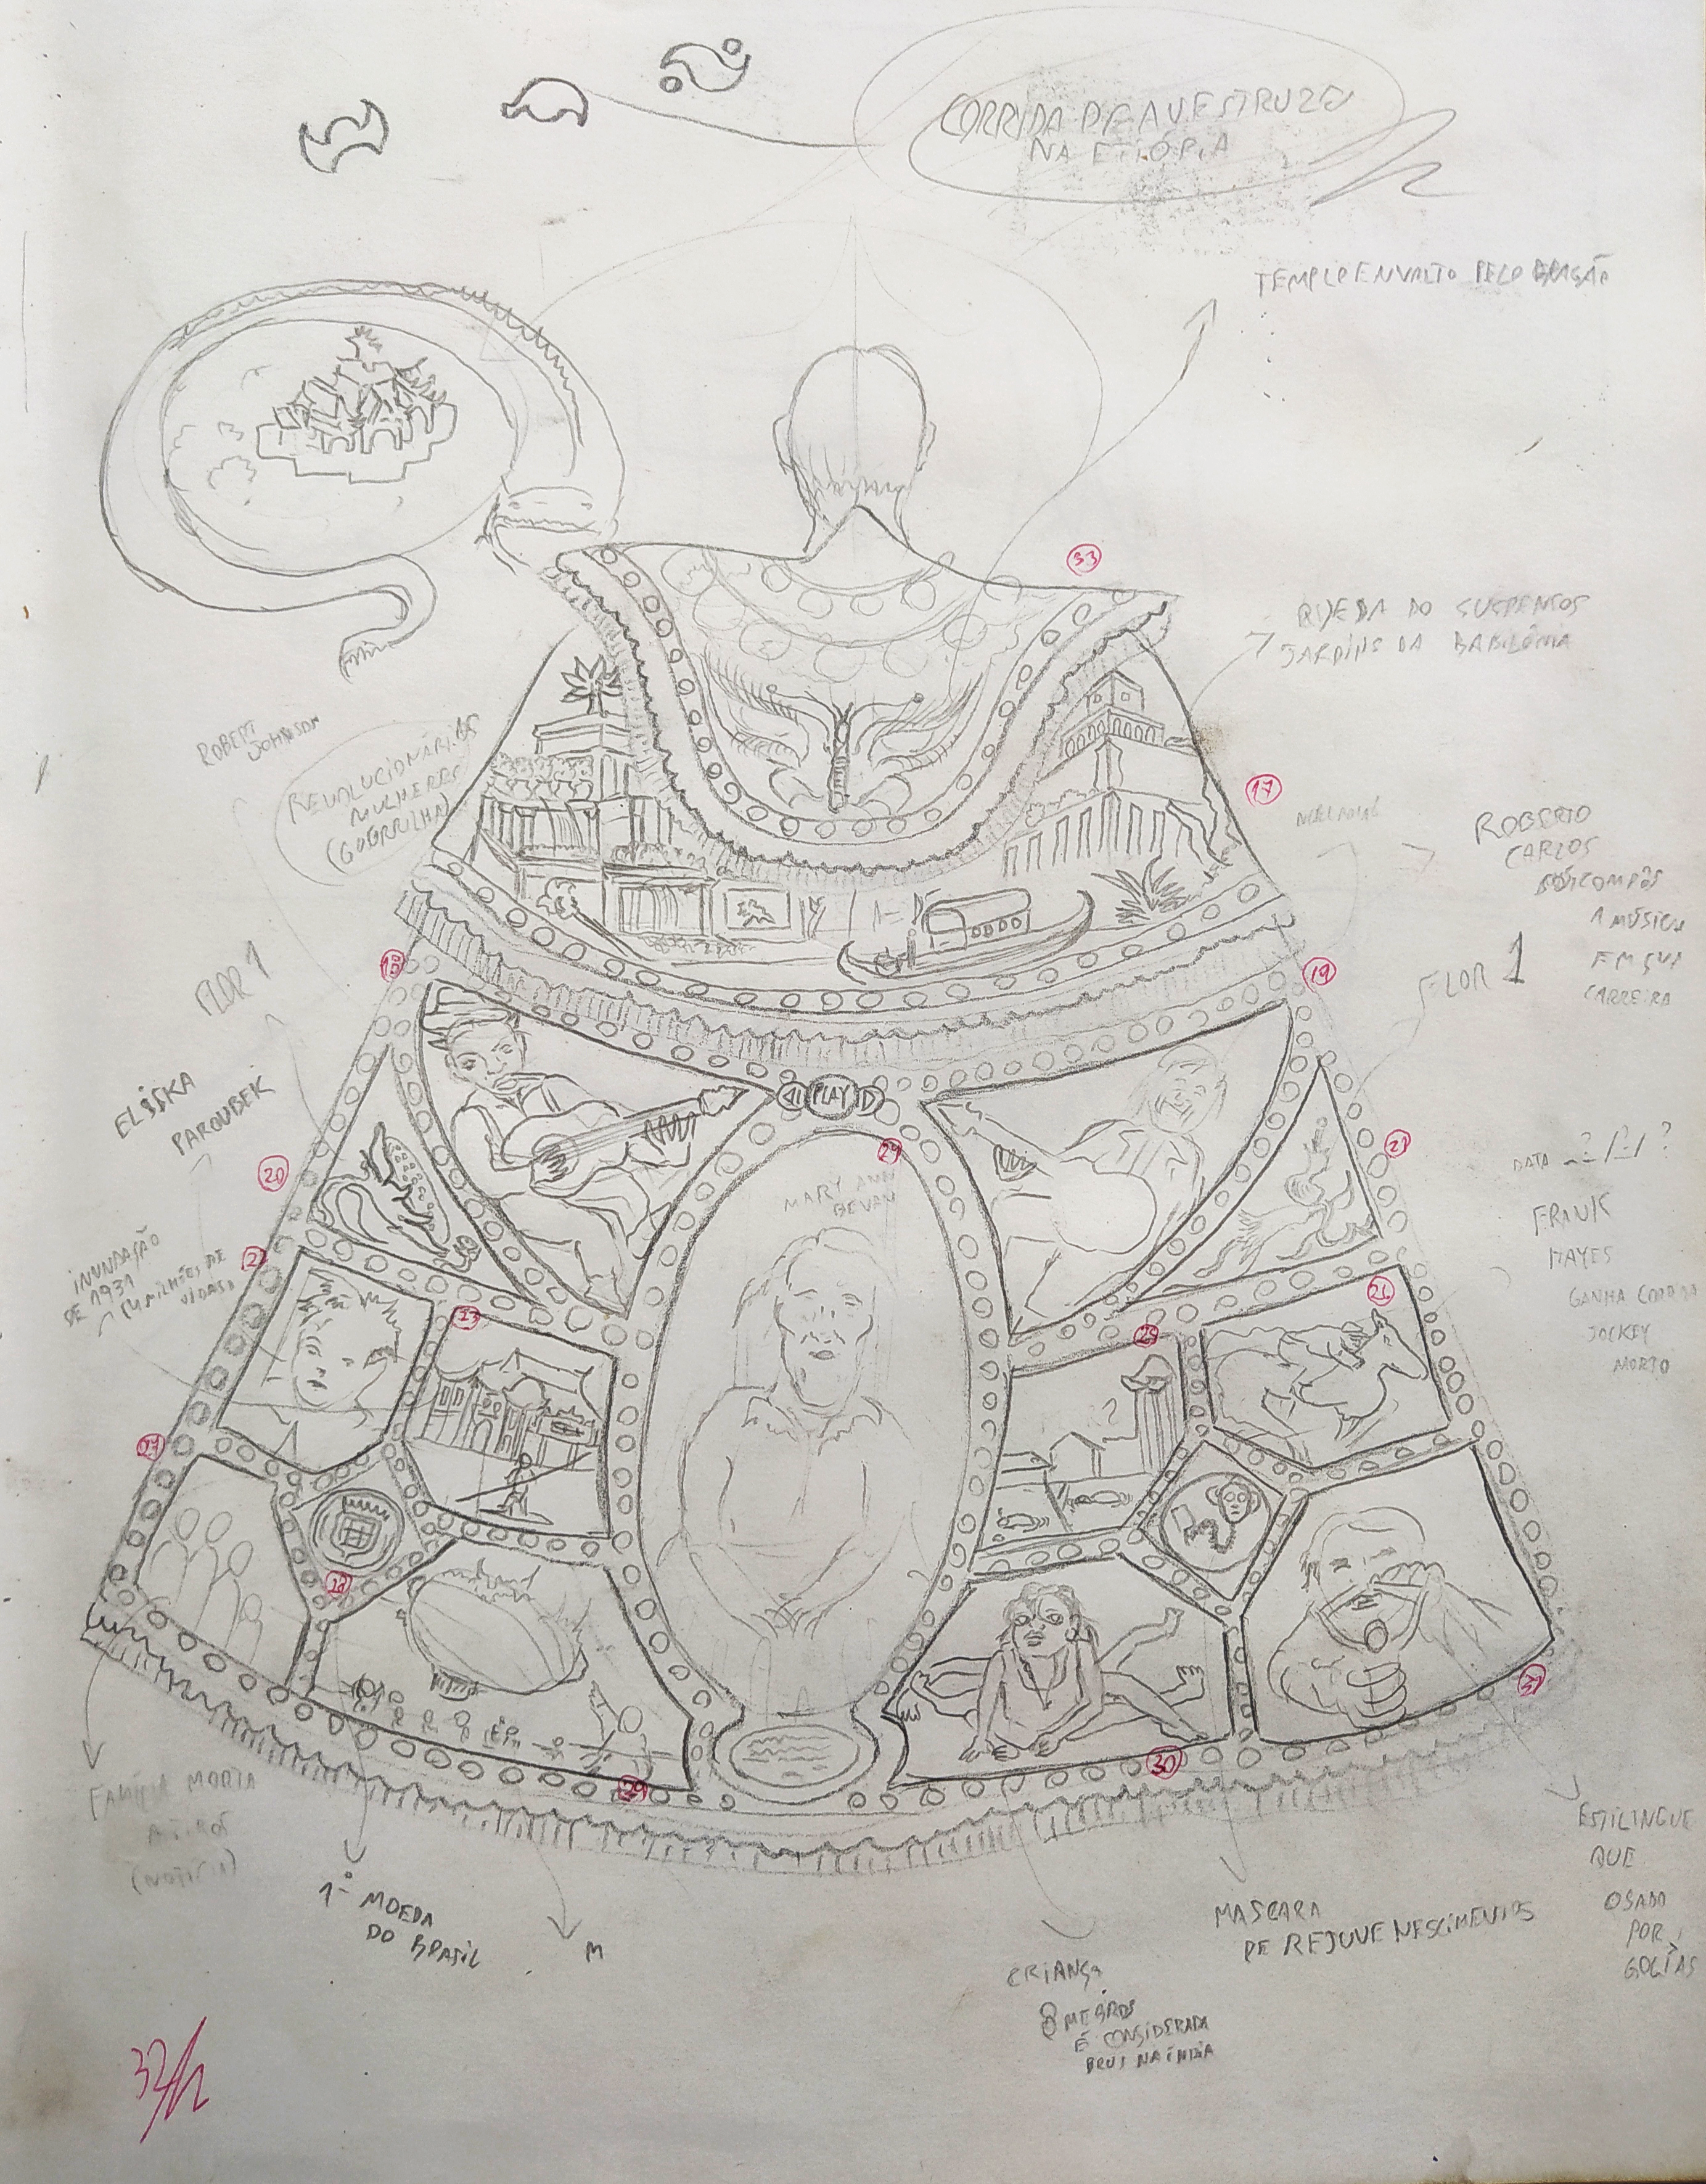 CORRIDA DE AVESTRUZES
NA ETIÓPIA
TEMPLO ENVOLTO PELO DRAGÃO
33
QUEDA DO SUSPENSOS
JARDINS DA BABILÔNIA
ROBERT
JOHNSON
REVOLUCIONÁRIAS
MULHERES
(GUERRILHA)
17
ROBERTO
CARLOS
COMPÔS
1 MÚSICA
EM SUA
CARREIRA
18
19
FLOR 1
FLOR 1
PLAY
ELISKA
PAROUBEK
20
21
24
MARY ANN
BEVAN
DATA
FRANK
HAYES
GANHA CORRIDA
JOCKEY
MORTO
INUNDAÇÃO
DE 1931
(4 MILHÕES DE
VIDAS)
23
25
26
27
28
29
30
31
FAMÍLIA MORTA
A TIROS
(NOTÍCIA)
1º MOEDA
DO BRASIL
M
CRIANÇA
8 MEBROS
É CONSIDERADA
DEUS NA ÍNDIA
MASCARA
DE REJUVENESCIMENTOS
ESTILINGUE
QUE
USADO
POR
GOLIAS
32